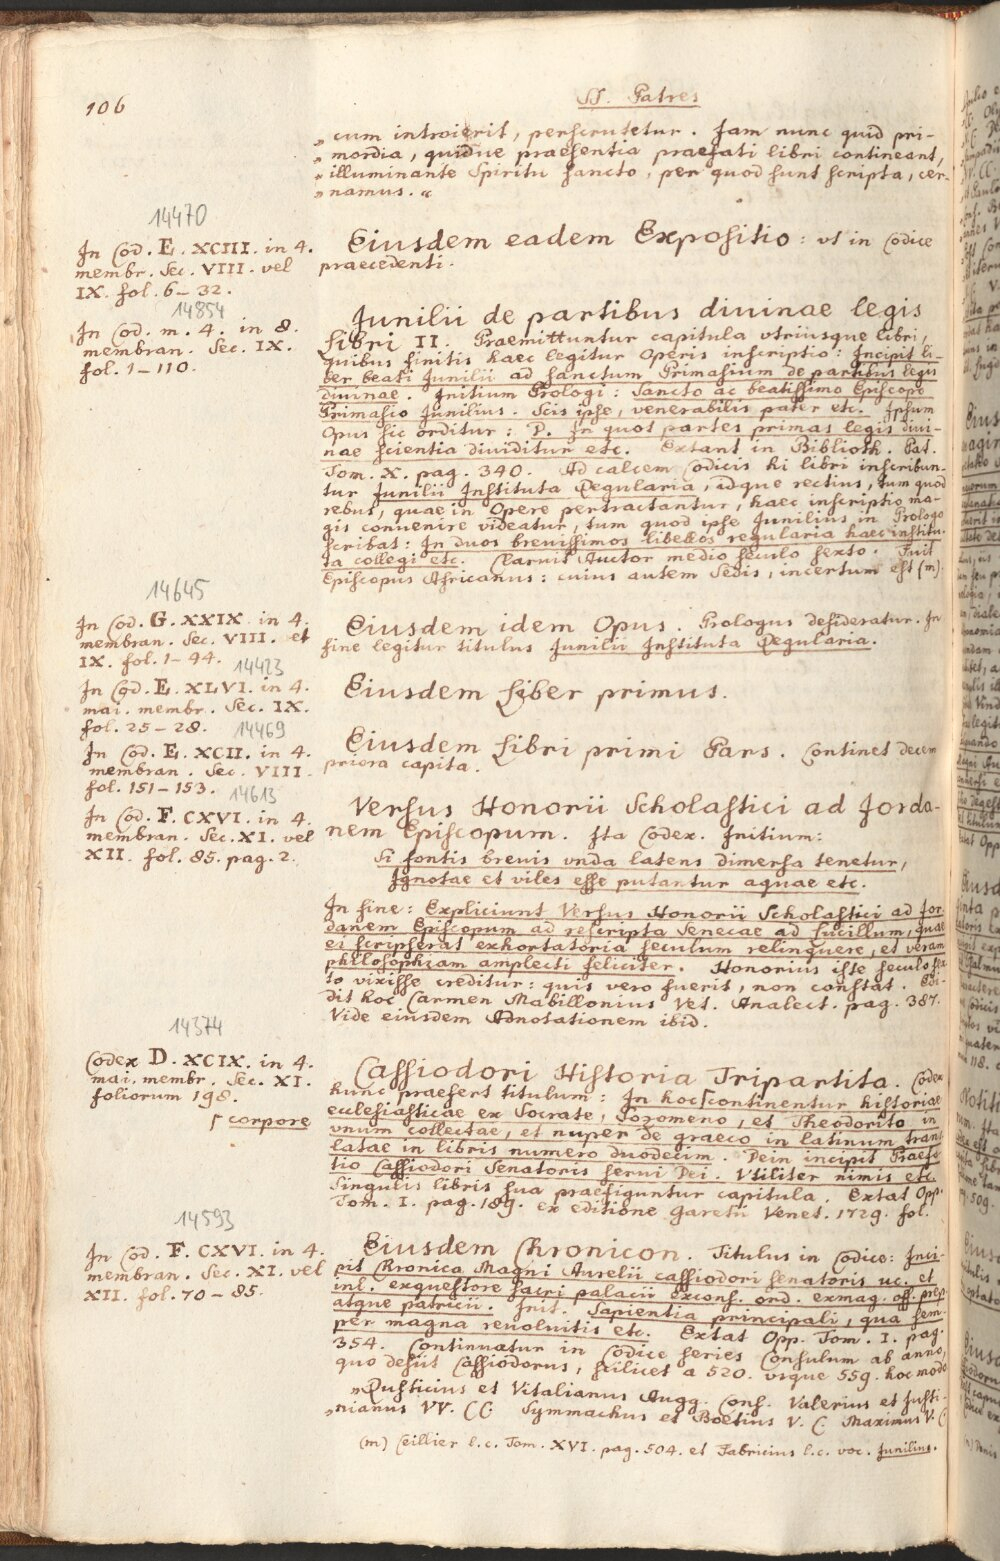 106
SS. Patres
„ cum introierit, perscrutetur. Jam nunc quid pri-
„ mordia, quidve praesentia praefati libri contineant,
„ illuminante Spiritu sancto, per quod sunt scripta, cer-
„ namus. “
14470
In Cod. E. XCIII. in 4.
membr. Sec. VIII. vel
IX. fol. 6-32.
Eiusdem eadem Expositio: ut in Codice
praecedenti.
14854
In Cod. m. 4. in 8.
membran. Sec. IX.
fol. 1-110.
Junilii de partibus diuinae legis
Libri II. Praemittuntur capitula utriusque libri,
quibus finitis haec legitur Operis inscriptio: Incipit li-
ber beati Junilii ad sanctum Primasium de partibus legis
diuinae. Initium Prologi: Sancto ac beatissimo Episcopo
Primasio Junilius. Scis ipse, venerabilis pater etc. Ipsum
Opus sic orditur: D. In quot partes primas legis diui-
nae scientia diuiditur etc. Extant in Biblioth. Pat.
Tom. X. pag. 340. Ad calcem Codicis hi libri inscribun-
tur Junilii Instituta Regularia, idque rectius, tum quod
rebus, quae in Opere pertractantur, haec inscriptio ma-
gis conuenire videatur, tum quod ipse Junilius in Prologo
scribat: In duos breuissimos libellos regularia haec institu-
ta collegi etc. Claruit Auctor medio seculo sexto. Fuit
Episcopus Africanus: cuius autem Sedis, incertum est (m)
14645
In Cod. G. XXIX. in 4.
membran. Sec. VIII. et
IX. fol. 1-44.
Eiusdem idem Opus. Prologus desideratur. In
fine legitur titulus Junilii Instituta Regularia.
14423
In Cod. E. XLVI. in 4.
mai. membr. Sec. IX.
fol. 25-28.
Eiusdem Liber primus.
14469
In Cod. E. XCII. in 4.
membran. Sec. VIII.
fol. 151-153.
Eiusdem Libri primi Pars. Continet decem
priora capita.
14613
In Cod. F. CXVI. in 4.
membran. Sec. XI. vel
XII. fol. 85. pag. 2.
Versus Honorii Scholastici ad Jorda-
nem Episcopum. Ita Codex. Initium:
Si fontis breuis unda latens dimersa tenetur,
Ignotae et viles esse putantur aquae etc.
In fine: Expliciunt Versus Honorii Scholastici ad Jor
danem Episcopum ad rescripta Senecae ad Lucillum, quae
ei scripserat exhortatoria seculum relinquere, et veram
philosophiam amplecti feliciter. Honorius iste seculo sex
to vixisse creditur: quis vero fuerit, non constat. Edi-
dit hoc Carmen Mabillonius Vet. Analect. pag. 387.
Vide eiusdem Adnotationem ibid.
14374
Codex D. XCIX. in 4.
mai. membr. Sec. XI.
foliorum 198.
⌈ corpore
Cassiodori Historia Tripartita. Codex
hunc praefert titulum: In hoc ⌈ continentur historiae
ecclesiasticae ex Socrate, Sozomeno, et Theodorito in
unum collectae, et nuper de graeco in latinum trans
latae in libris numero duodecim. Dein incipit Praefa
tio Cassiodori Senatoris serui Dei. Utiliter nimis etc.
Singulis libris sua praefiguntur capitula. Extat Opp.
Tom. I. pag. 189. ex editione Garetii Venet. 1729. fol.
14593
In Cod. F. CXVI. in 4.
membran. Sec. XI. vel
XII. fol. 70-85.
Eiusdem Chronicon. Titulus in Codice: Inci-
pit Chronica Magni Aurelii cassiodori senatoris uc. et
inl. exquestore sacri palacii exconf. ord. exmag. off. prep
atque patricii. Init. Sapientia principali, qua sem-
per magna reuoluitis etc. Extat Opp. Tom. I. pag.
354. Continuatur in Codice series Consulum ab anno,
quo desiit Cassiodorus, scilicet a 520. usque 559. hoc modo
„ Rusticius et Vitalianus Augg. Cons. Valerius et Justi-
„ nianus VV. CC. Symmachus et Boetius V. C. Maximus V. C.
(m) Ceillier l.c. Tom. XVI. pag. 504. et Fabricius l.c. voc. Junilius.